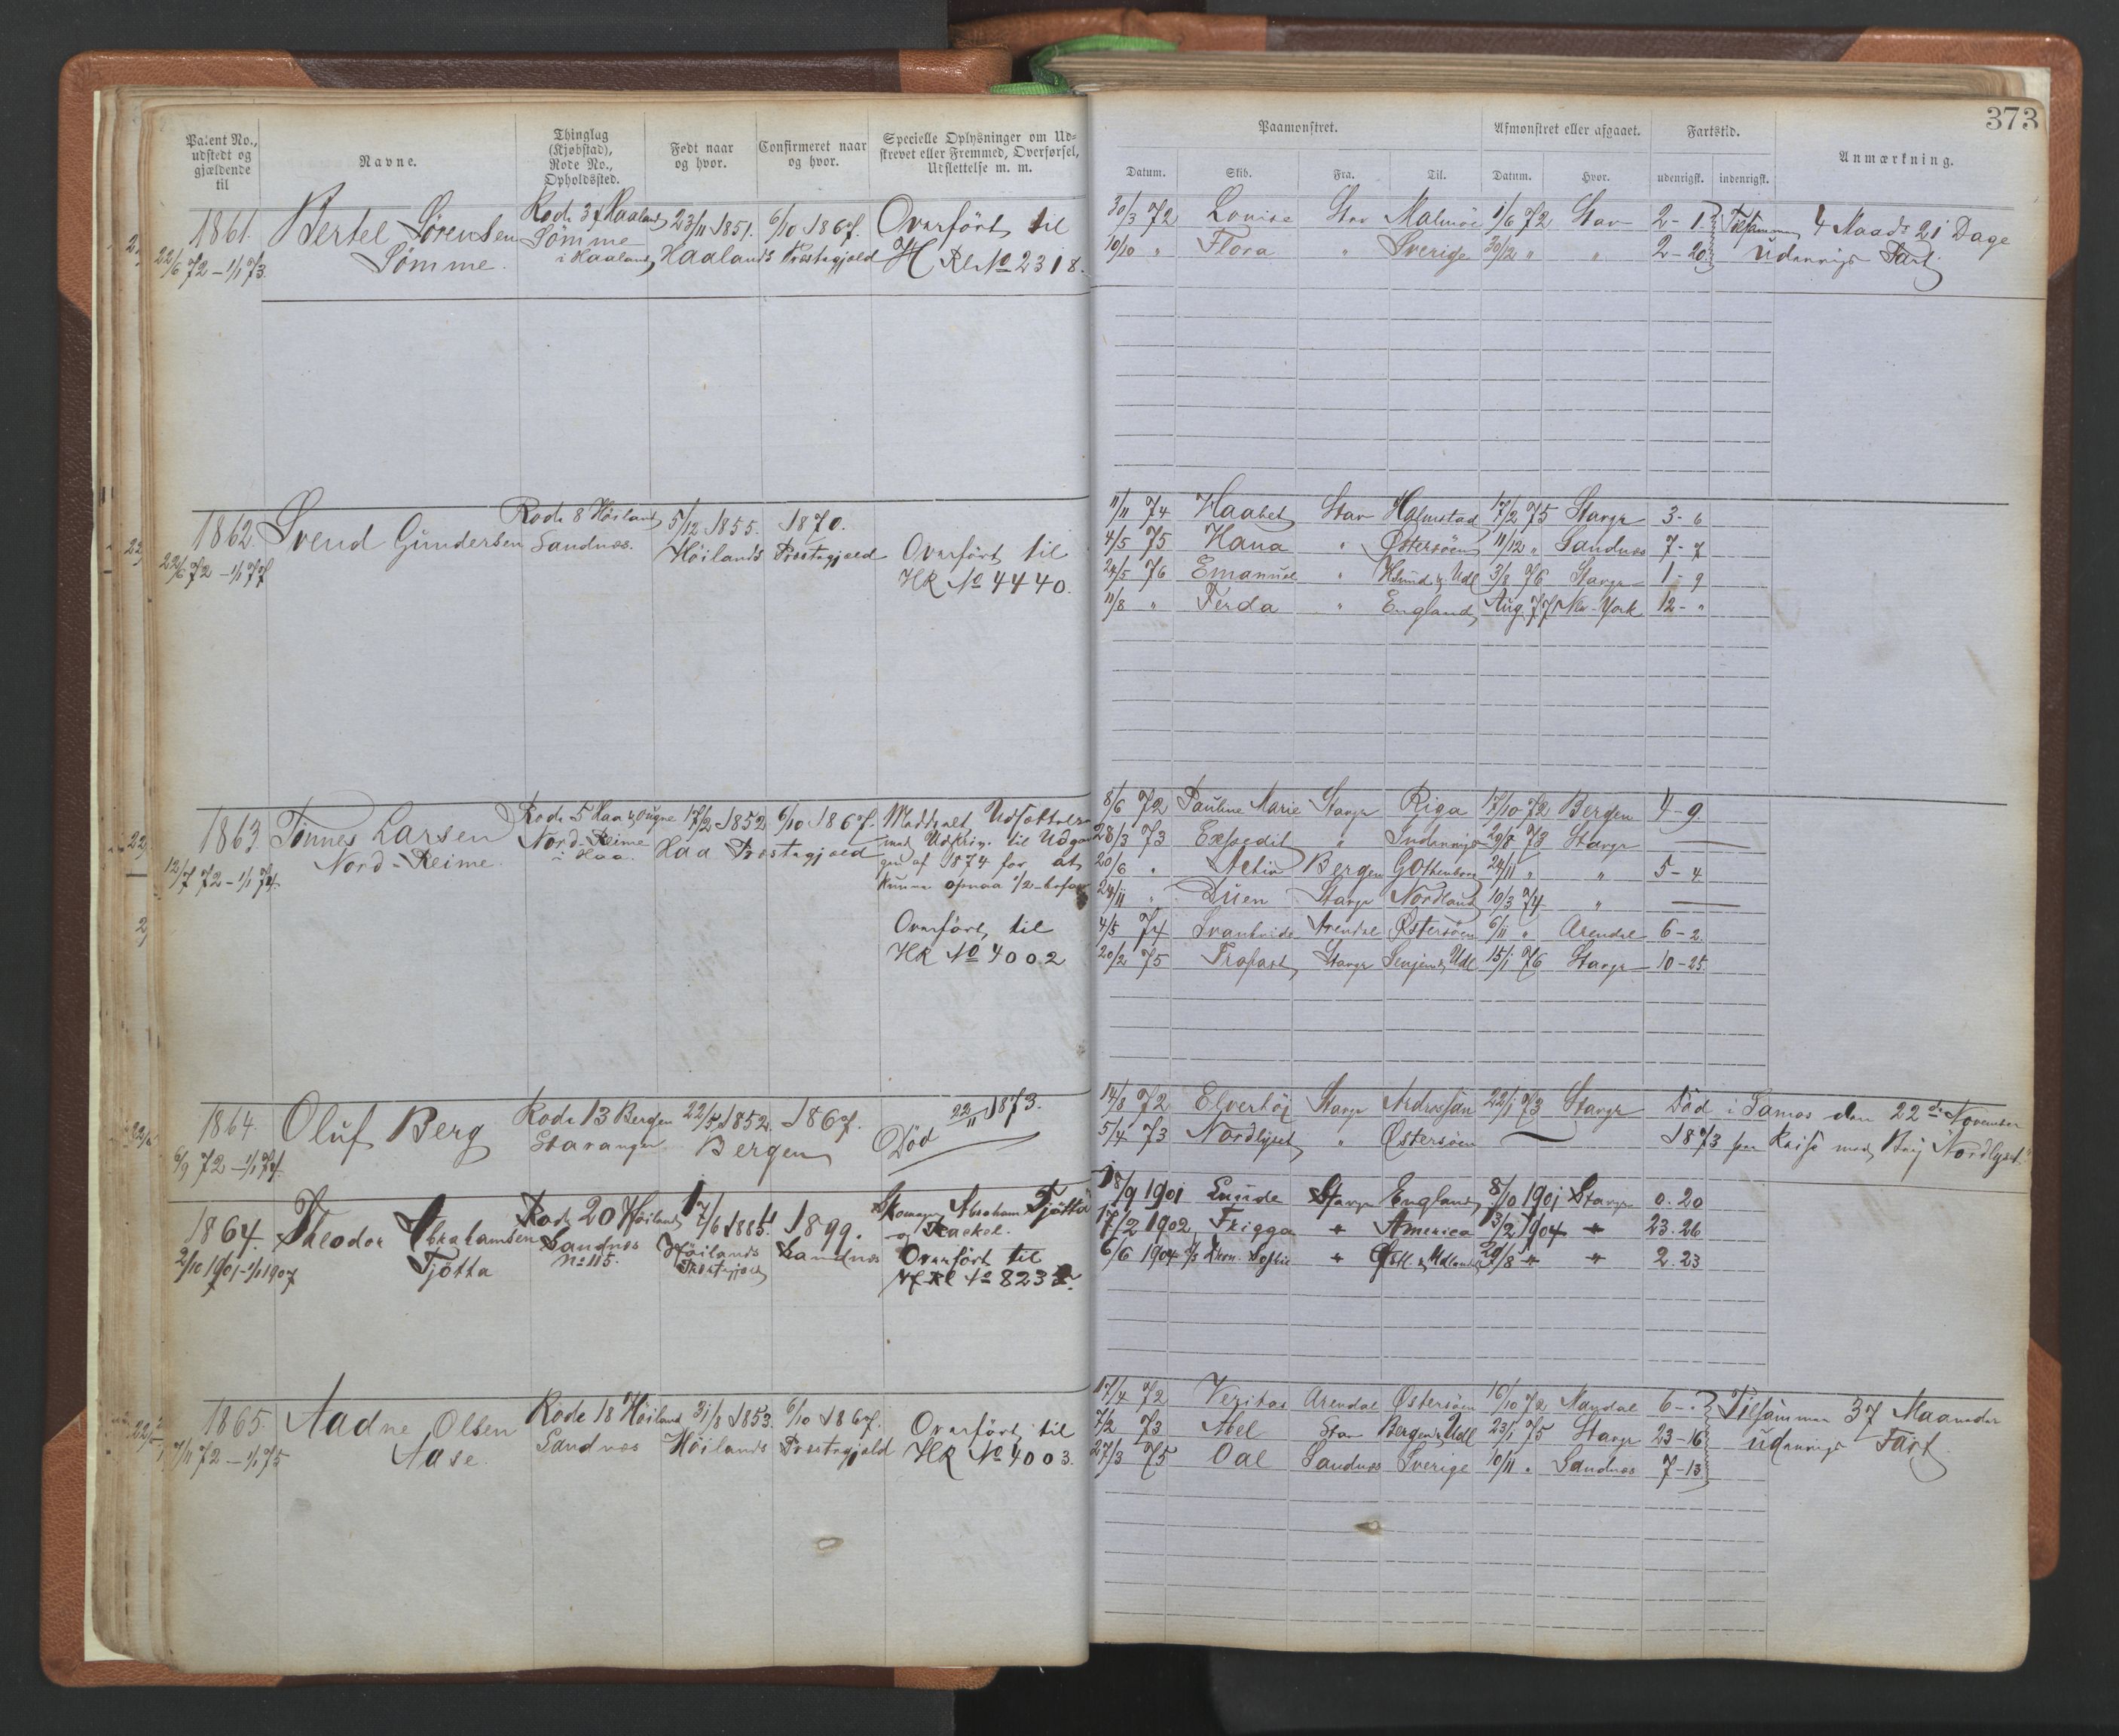 373
Patent No.,
udstedt og
gjældende
til
Navne.
Thinglag
(Kjøbstad),
Rode No.,
Opholdssted.
Født naar
og hvor.
Confirmeret naar
og hvor.
Specielle Oplysninger om Ud=
skrevet eller Fremmed, Overførsel,
Udslettelse m. m.
Paamønstret.
Afmønstret eller afgaaet.
Fartstid.
Anmærkning.
Datum. Skib. Fra. Til. Datum. Hvor. udenrigsk. indenrigsk.
1861. Bertel Sørensen Rode 37 Haaland 23/11 1851. 6/10 1867. Overført til
22/6 72 – 1/1 73 Sømme. Sømme i Haaland, Haalands Præstegjæld H Rl No 2318.
30/3 72 Louise Stav Malmöe 1/6 72 Stav 2 - 1. Tilsammen 4 Maadr 21 Dage
10/10 " Flora " Sverige 30/12 " " 2 - 20. udenrigs Fart
1862. Svend Gundersen Rode 8 Höiland 5/12 1855. 1870.
22/6 72 – 1/1 77 Sandnæs. Höilands Præstegjæld Overført til
HR No 4440.
11/11 74 Haabet Stav Halmstad 17/2 75 Stavgr 3 - 6
4/5 75 Hana " Østersöen 11/12 " Sandnæs 7 - 7
24/5 76 Emanuel " & Udl 3/8 76 Stavgr 1 - 9
11/8 " Ferda " England Aug. 77 New-York 12 - "
1863. Tönnes Larsen Rode 5 Haa & Ougne 17/2 1852 6/10 1867. Meddealt Udsættelse
12/7 72 – 1/1 74 Nord-Reime Nord-Reime i Haa. Haa Præstegjæld med Udskriv. til Udgan
gen af 1874 for at
kunne opnaa 1/2-befar
Overført til
HR No 4002
8/6 72 Pauline Marie Stavgr Riga 17/10 72 Bergen 4 - 9
28/3 73 Expedit " Indenrigs 29/8 73 Stavgr —
20/6 " Activ Bergen Gothenborg 24/11 " " 5 - 4
24/11 " Duen Stavgr Nordland 10/3 74 " —
4/5 74 Svanhvide Arendal Østersöen 6/11 " Arendal 6 - 2.
20/2 75 Trofast Stavgr Senjen & Udl 15/1 76 Stavgr 10 - 25.
1864. Oluf Berg Rode 13 Bergen 22/5 1852. 1867. 22/11 1873.
6/9 72 – 1/1 74 Stavanger Bergen Död
14/8 72 Elverhöj Stavgr Ardrossan 22/1 73 Stavgr Död i den 22de November
5/4 73 Nordlyset " Østersöen — 1873 paa Reise med Brig "Nordlyset"
1864. Theodor Abrahamsen Rode 20 Höiland 17/6 1885. 1899. Skomager Abraham Tjötta
2/10 1901 – 1/1 1907 Tjötta Sandnæs No 115. Höilands Præstegjæld Sandnæs og Raakel.
Overført til
Rl No 823
18/9 1901 Lunde Stavgr England 8/10 1901 Stavgr 0. 20
17/2 1902 Frigga " America 13/2 1904 " 23. 26
6/6 1904 Kron. Sophie " Østl. & Udland 29/8 " " 2. 23
1865. Aadne Olsen Rode 18 Höiland 31/8 1853. 6/10 1867. Overført til
7/11 72 – 1/1 75 Aase. Sandnæs Höilands Præstegjæld HR No 4003.
17/4 72 Veritas Arendal Østersöen 16/10 72 Mandal 6 - . Tilsammen 37 Maaneder
7/2 73 Abel Stav Bergen & Udl 23/1 75 Stavgr 23 - 16 udenrigs Fart
27/3 75 Oal Sandnæs Sverige 10/11 " Sandnæs 7 - 13